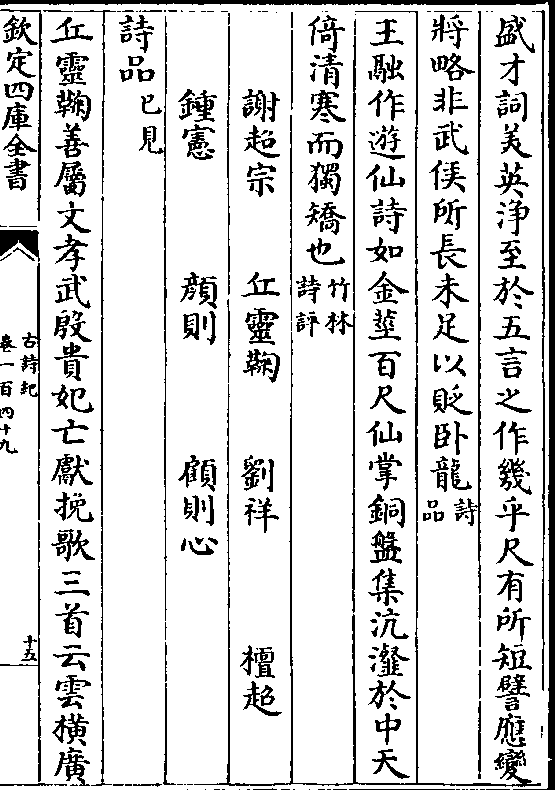 盛才詞美英淨至於五言之作幾乎尺有所短譬應變
將略非武侯所長未足以貶卧龍詩品
王融作遊仙詩如金莖百尺仙掌銅盤集沆瀣於中天
倚清寒而獨矯也竹林詩評
謝超宗　丘靈鞠　劉祥　檀超
鍾憲　顔則　顧則心
詩品已見
丘靈鞠善屬文孝武殷貴妃亡獻挽歌三首云雲橫廣
欽定四庫全書
古詩紀
卷一百四十九
十五